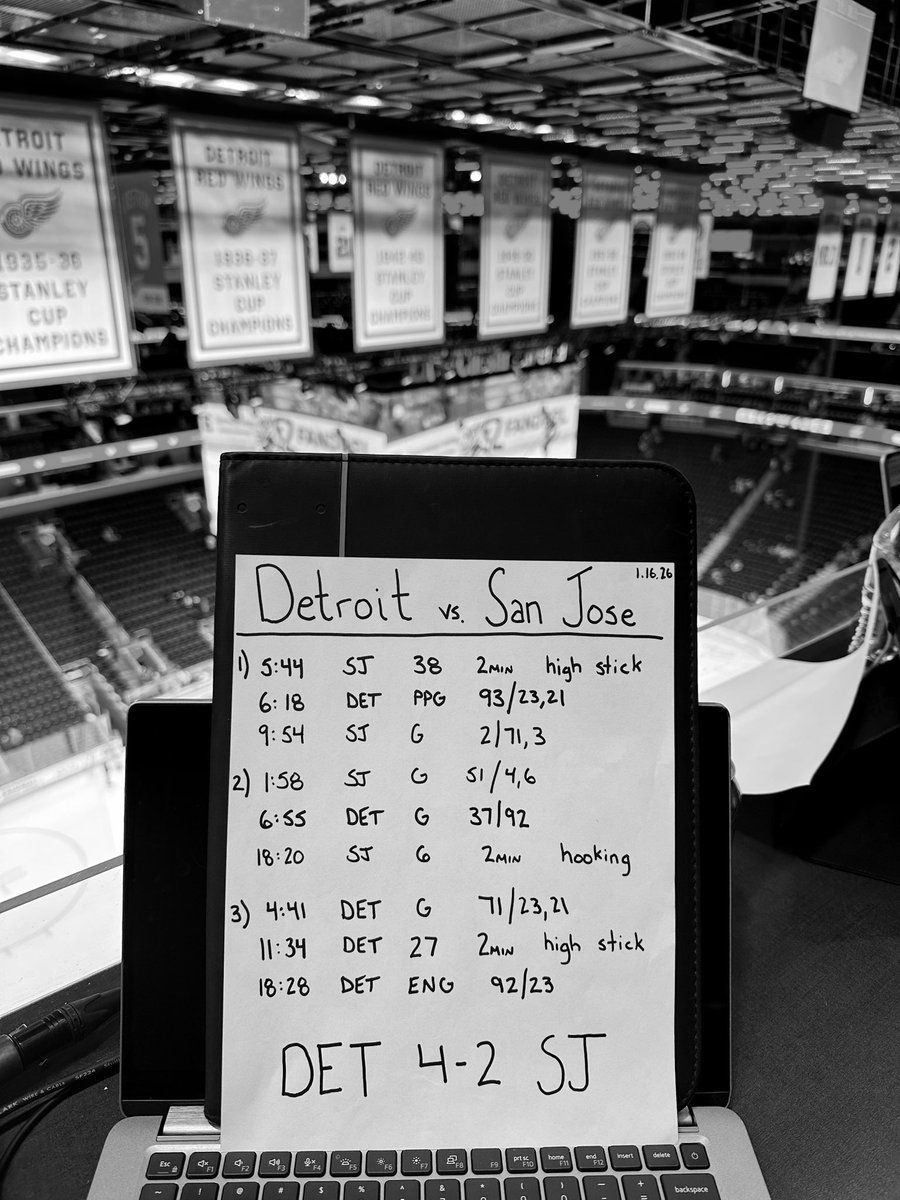 DETROIT
RED WINGS
1935-36
STANLEY
CUP
CHAMPIONS
DETROIT
RED WINGS
1936-37
STANLEY
CUP
CHAMPIONS
DETROIT
RED WINGS
STANLEY
CUP
CHAMPIONS
5
1.16.26
Detroit vs. San Jose
1) 5:44 SJ 38 2MIN high stick
6:18 DET PPG 93/23,21
9:54 SJ G 2/71,3
2) 1:58 SJ G 51/4,6
6:55 DET G 37/92
18:20 SJ 6 2MIN hooking
3) 4:41 DET G 71/23,21
11:34 DET 27 2MIN high stick
18:28 DET ENG 92/23
DET 4-2 SJ
Esc F1 F2 F3 F4 F5 F6 F7 F8 F9 prt sc F10 home F11 end F12 insert delete
~ ! @ # $ % ^ & * ( ) — + backspace